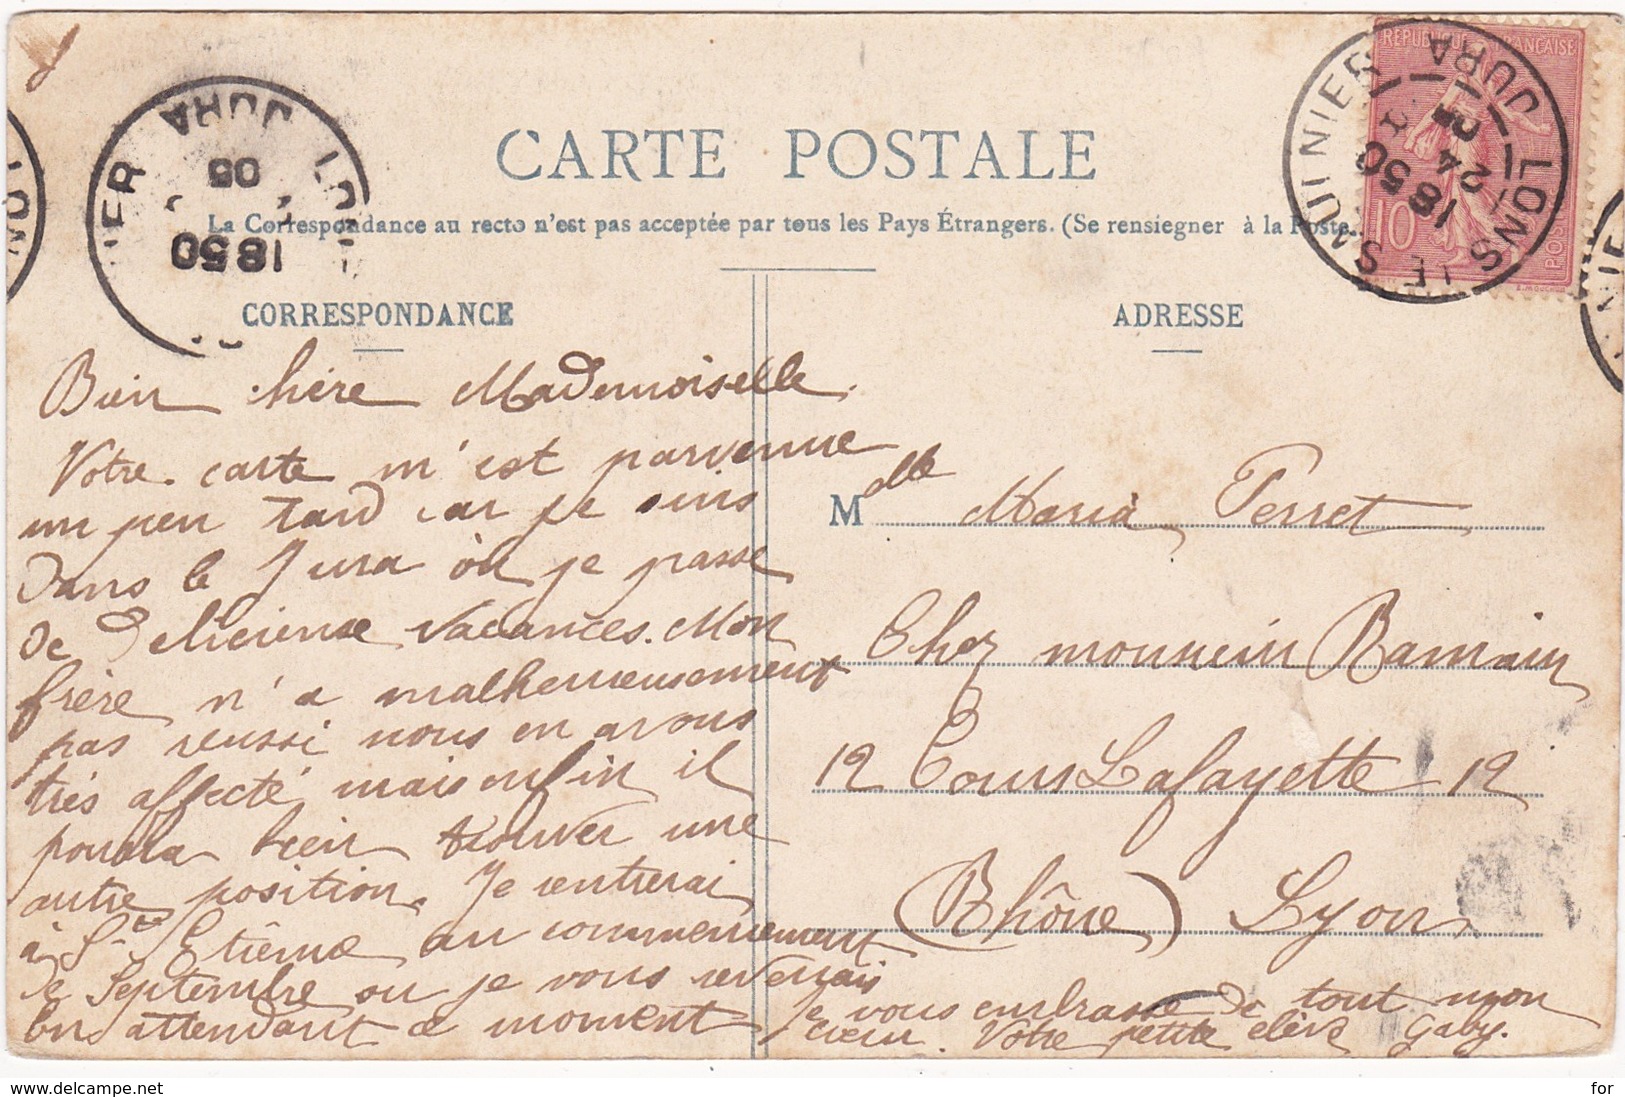 CARTE POSTALE
La Correspondance au recto n'est pas acceptée par tous les Pays Étrangers. (Se rensiegner à la Poste.
CORRESPONDANCE
Bien chère Mademoiselle.
Votre carte m'est parvenue
un peu tard car je suis
dans le Jura où je passe
de délicieuse vacances. Mon
frère n'a malheureusement
pas réussi nous en avons
très affecté mais enfin il
pourra bien trouver une
autre position. Je rentrerai
à St Etienne au commencement
de Septembre ou je vous reverrais
En attendant ce moment
je vous embrasse de tout mon
cœur. Votre petite élève Gaby.
ADRESSE
Melle Maria Perret
Chez monsieur Romain
12 Cours Lafayette 12
(Rhône) Lyon
RÉPUBLIQUE FRANÇAISE
10
POSTES
LONS LE SAUNIER
JURA
18 50
24
05
JURA
05
18 50
delcampe.net
for